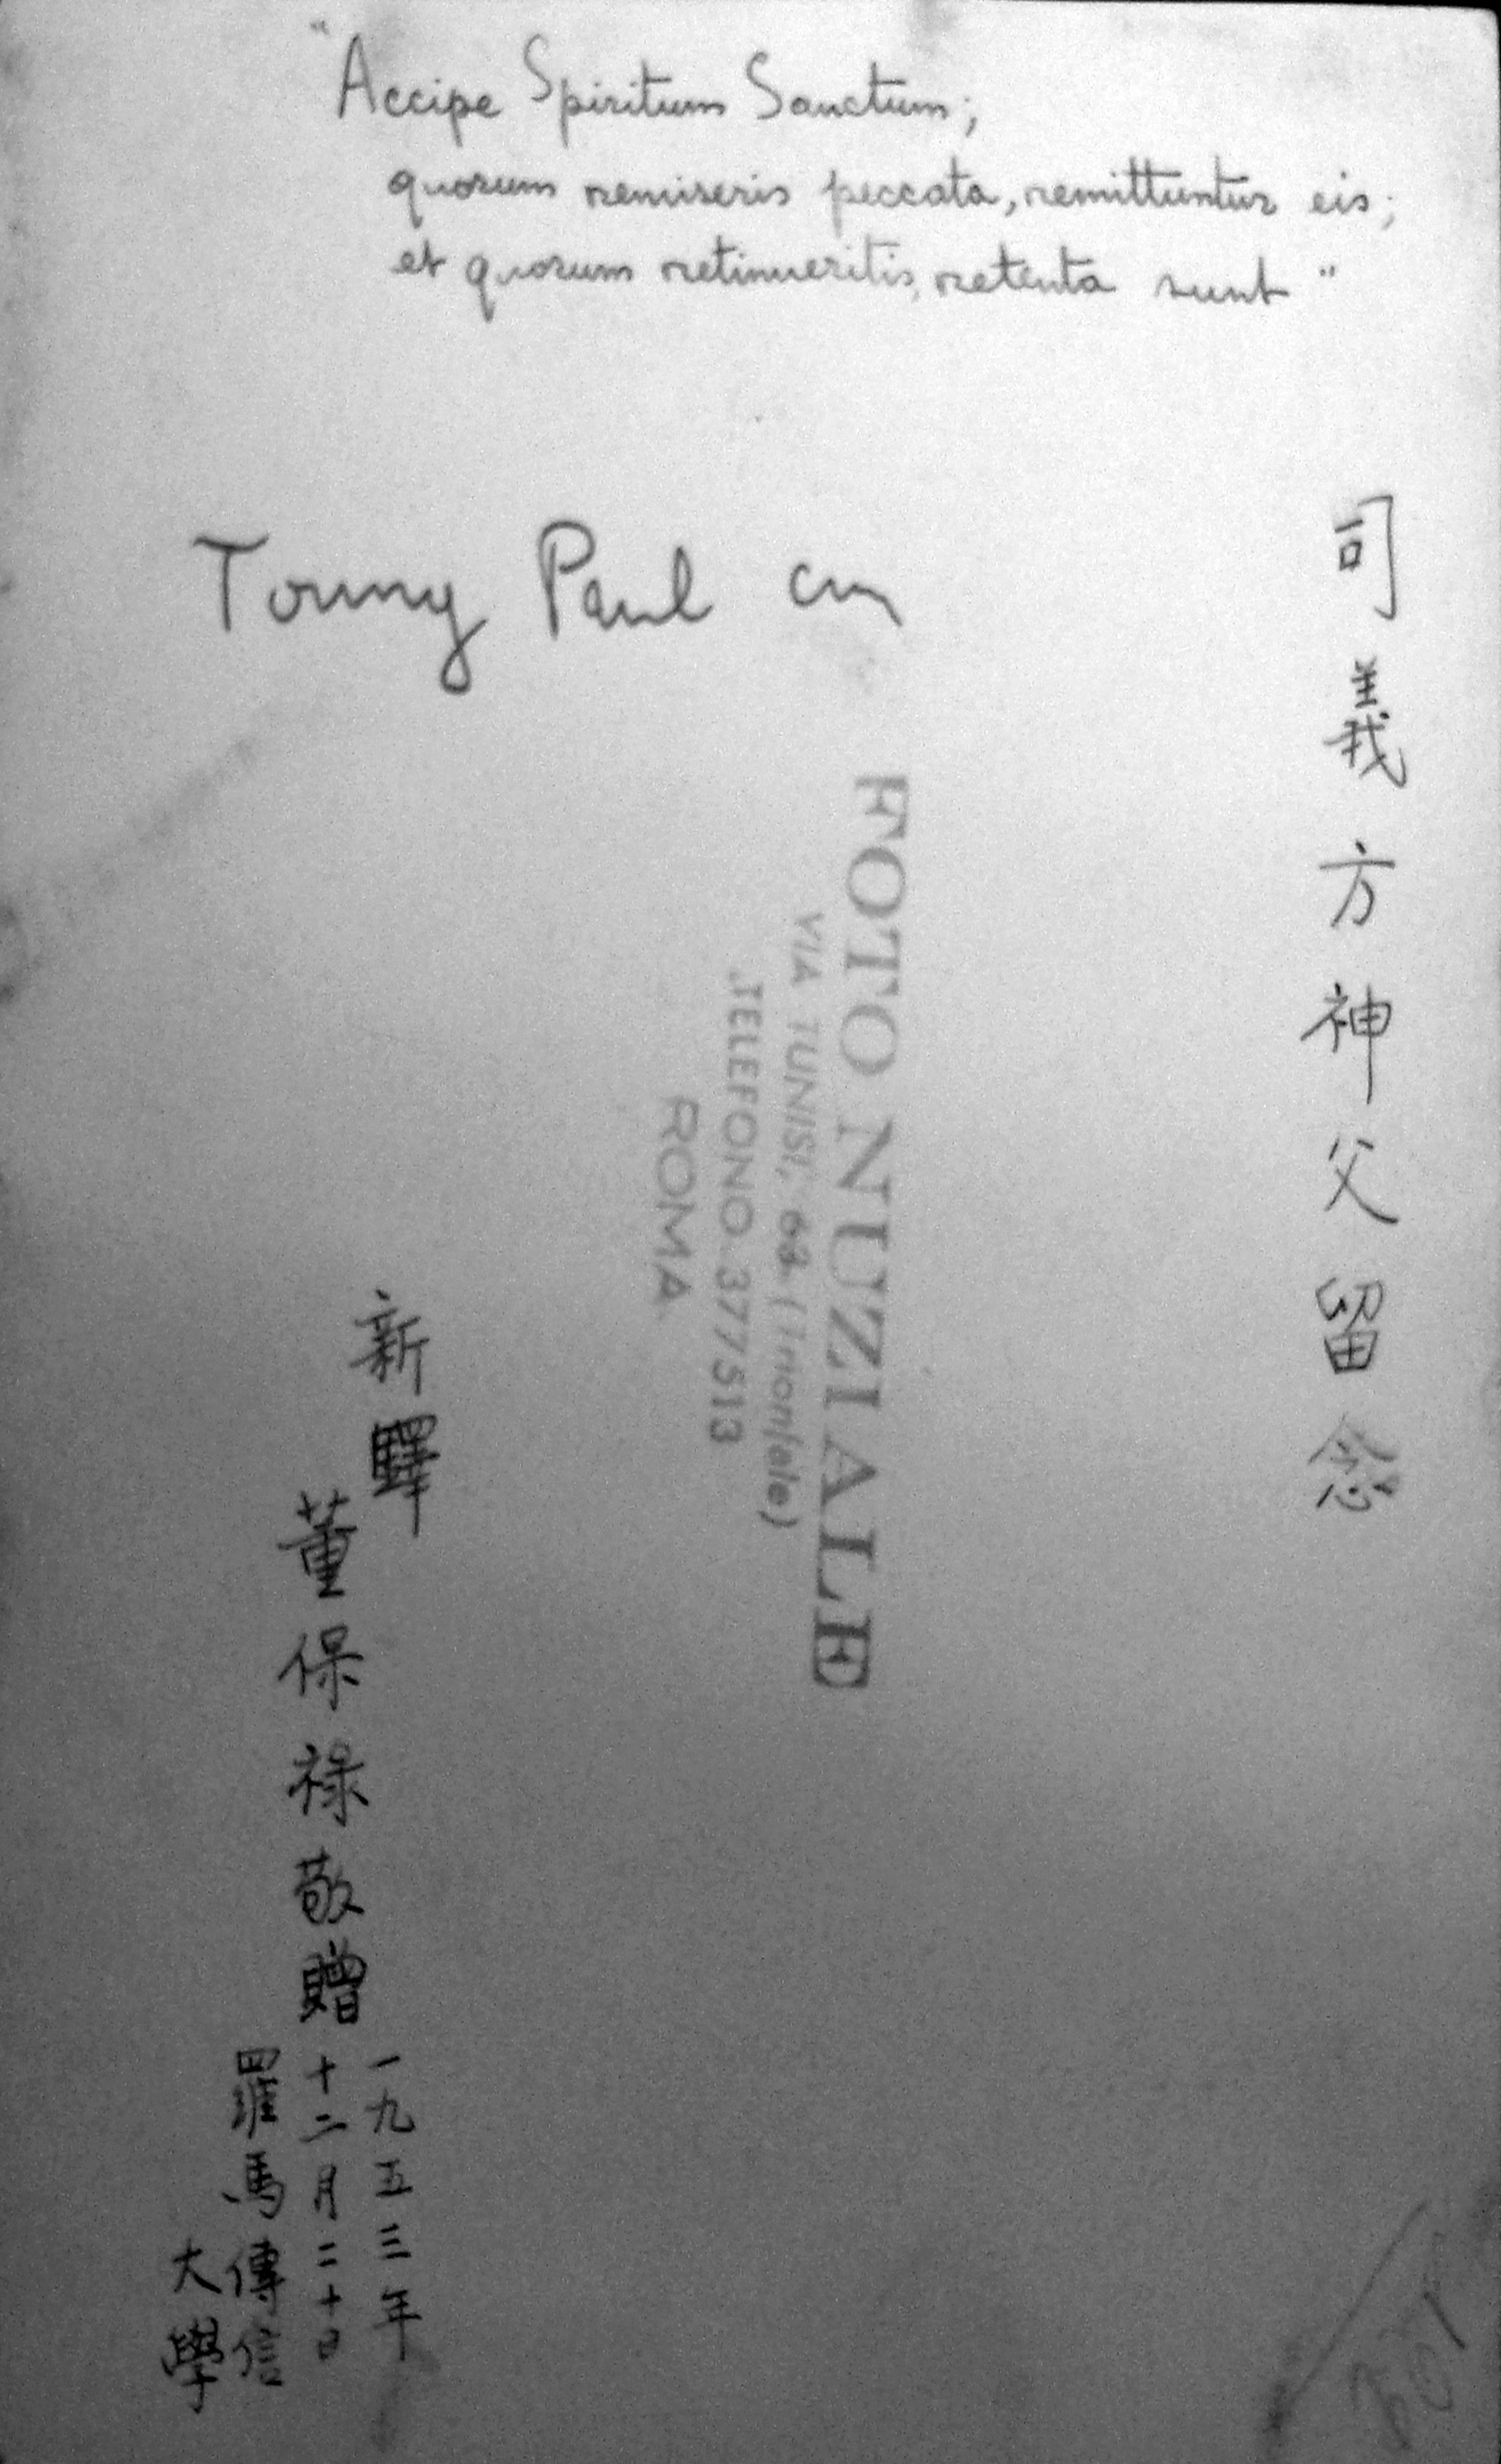 "Accipe Spiritum Sanctum;
quorum remiseris peccata, remittuntur eis;
et quorum retinueritis, retenta sunt"
Toung Paul cm
司義方神父留念
FOTO NUZIALE
VIA TUNISI, 68 (Trionfale)
TELEFONO 377513
ROMA
新鐸
董保祿敬贈
一九五三年
十二月二十日
羅馬傳信
大學